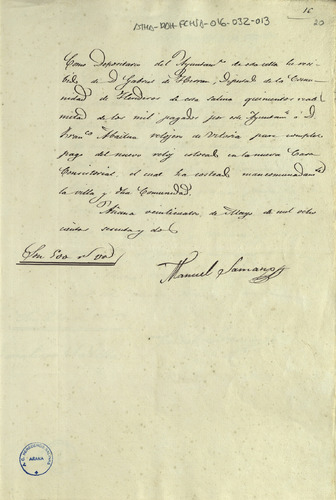 ATHA-DAH-FCHSA-016-032-013
16
20
Como Depositario del Ayuntamto de esta villa he reci-
bido de D. Gabriel de Herran, diputado de la Comu-
nidad de Herederos de esta salina quinientos reales
mitad de los mil pagados por este Ayuntamto a D.
Franco Abaitua relojero de Vitoria para completo
pago del nuevo reloj colocado en la nueva Casa
Consistorial, el cual ha costeado mancomunadamte
la villa y dha Comunidad.
Añana veinticuatro de Mayo de mil ocho
cientos sesenta y dos
Son 500 rs vn
Manuel Samaniego
ARABA